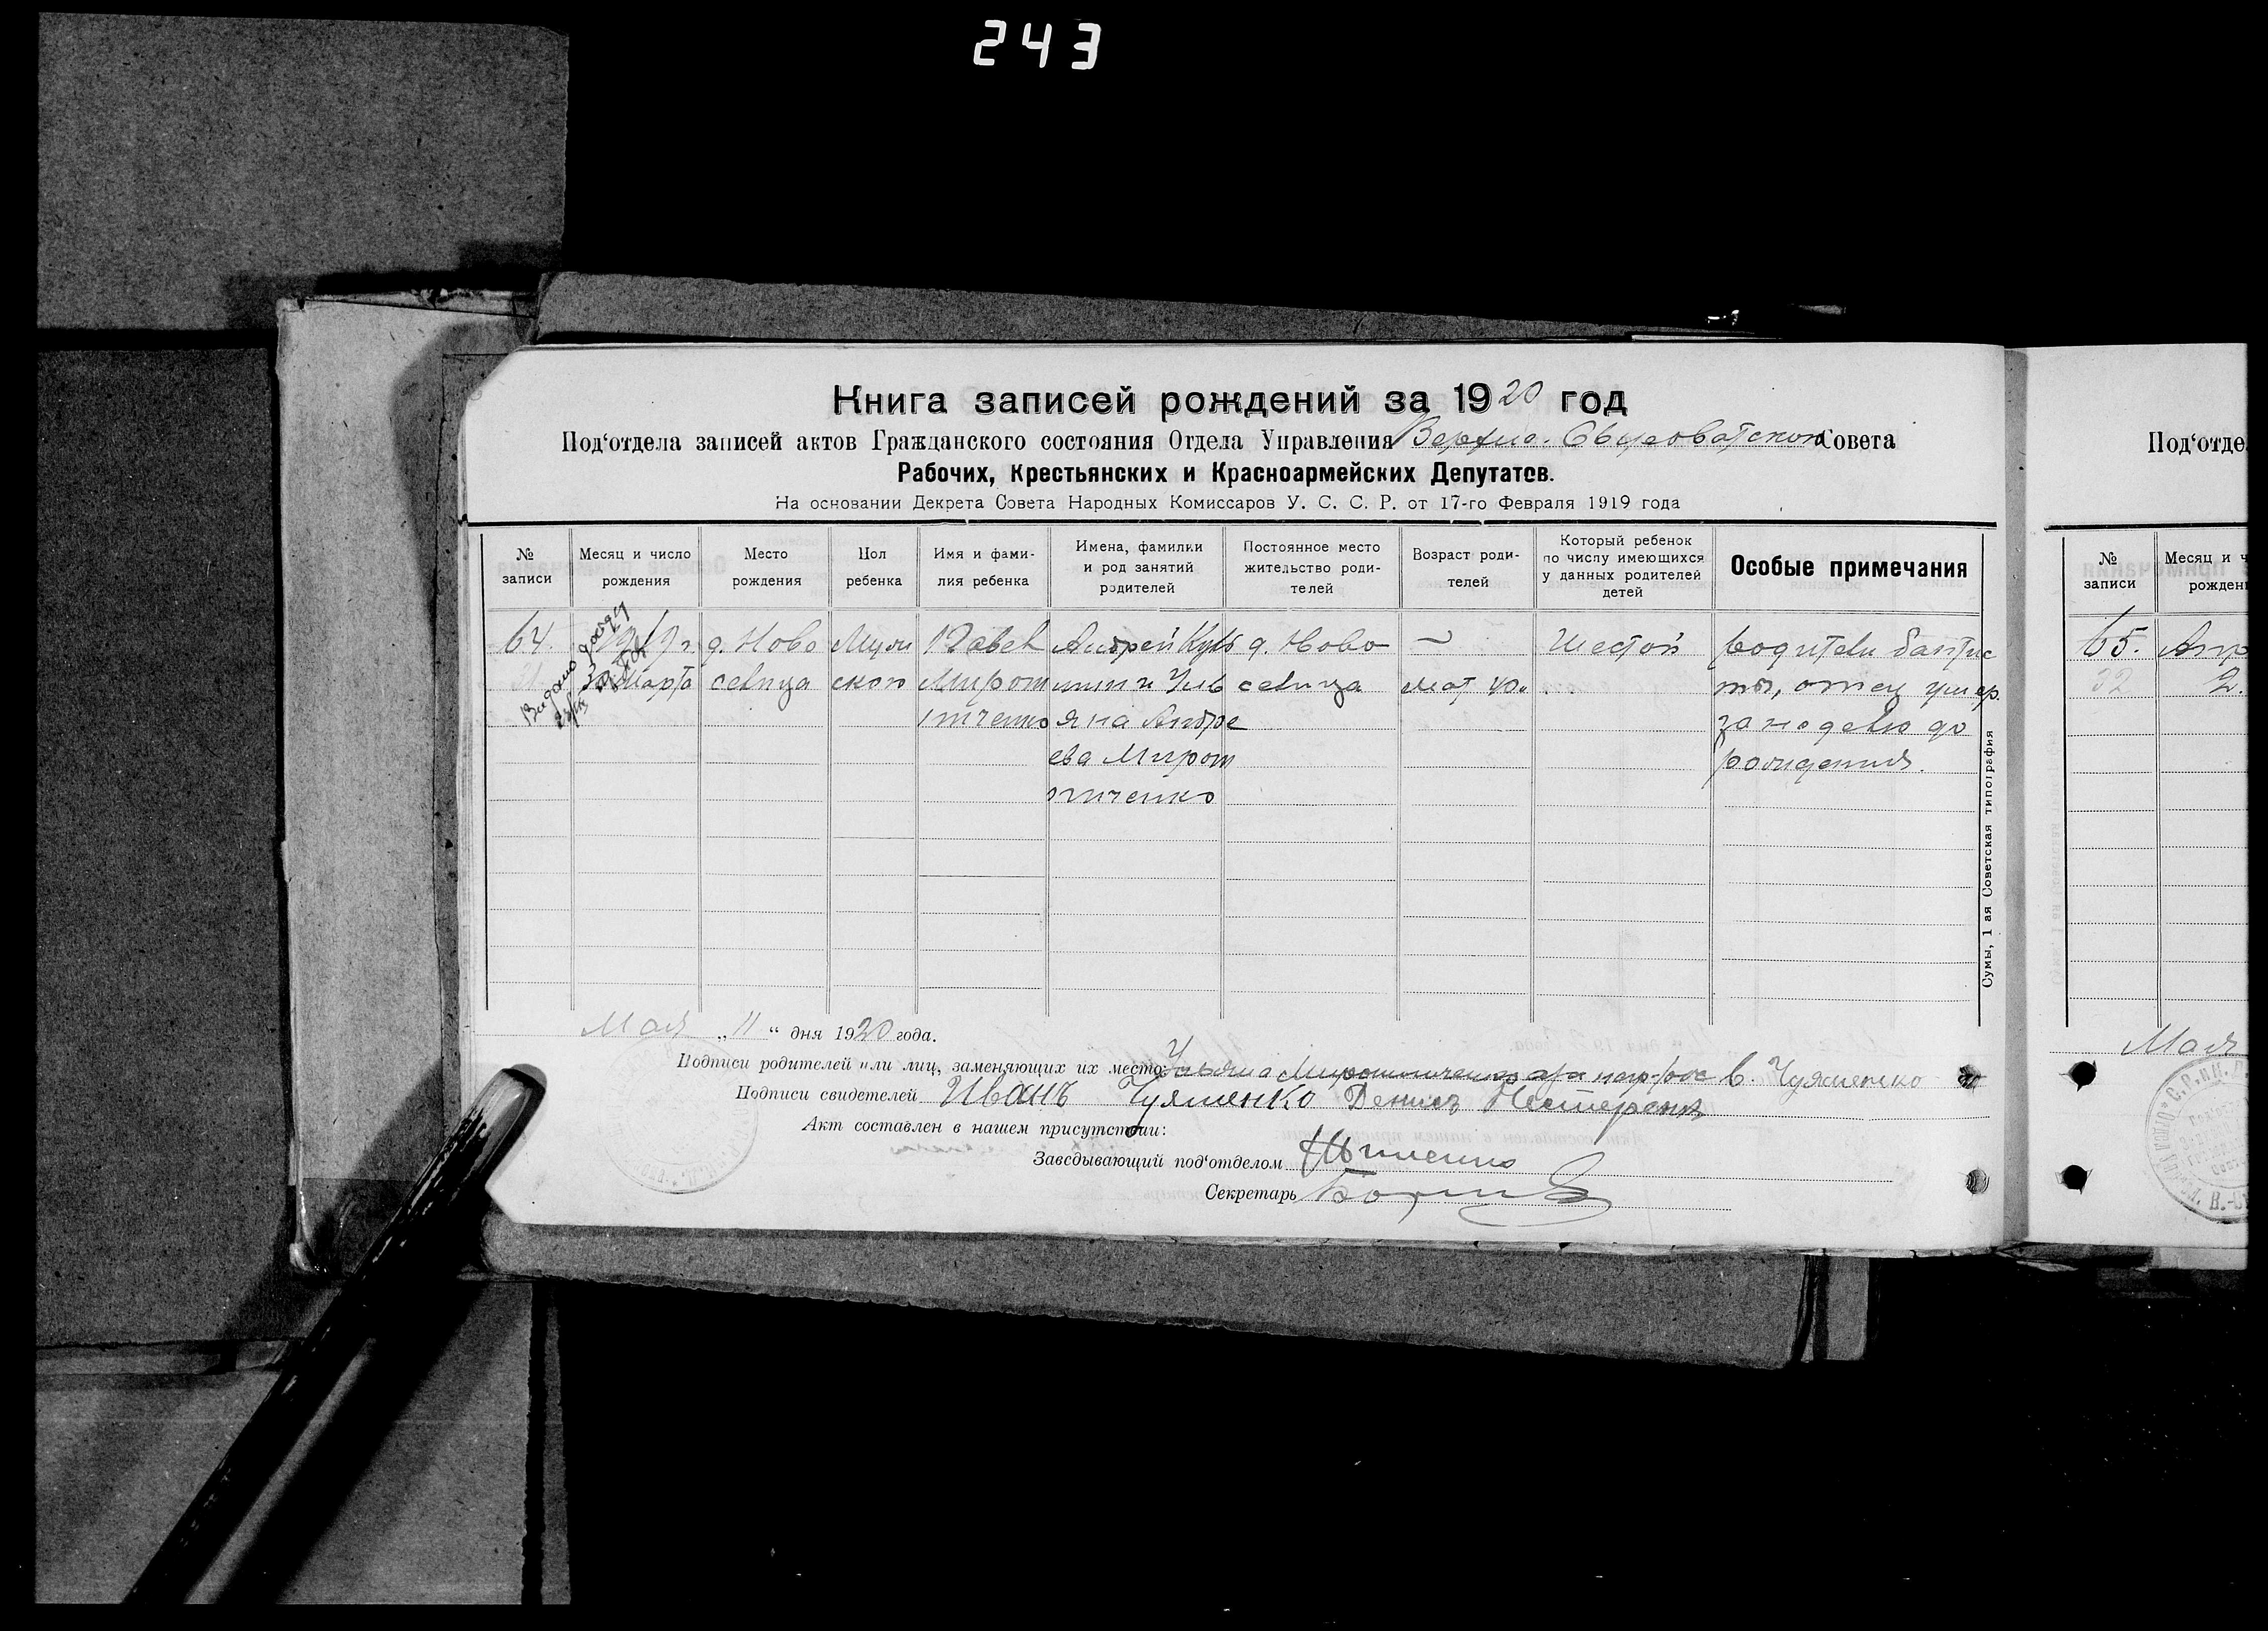 243
Книга записей рождений за 1920 год
Под‘отдела записей актов Гражданского состояния Отдела Управления Верхне-Сыроватского Совета
Рабочих, Крестьянских и Красноармейских Депутатов.
На основании Декрета Совета Народных Комиссаров У. С. С. Р. от 17-го Февраля 1919 года
№ записи
Месяц и число рождения
Место рождения
Пол ребенка
Имя и фамилия ребенка
Имена, фамилии и род занятий родителей
Постоянное место жительство родителей
Возраст родителей
Который ребенок по числу имеющихся у данных родителей детей
Особые примечания
64. 1919 г. д. Ново Муж Павел Андрей Кузь д. Ново — Шестой родители баптис
марта севица ской Мирош мин и Уль севица мат 40. ты, отец умер
ниченко яна Андре за неделю до
ева Мирош рождения.
ниченко
Сумы, 1 ая Советская типография
Мая „11“ дня 1920 года.
Подписи родителей или лиц, заменяющих их место: Ульяна Мирошниченко
Подписи свидетелей Иванъ Чуяшенко Денисъ Нестеренко
Акт составлен в нашем присутствии:
Заведывающий под‘отделом
Секретарь
Под‘отде
№ записи
Месяц и ч
рожден
65.
32 2.
Мая